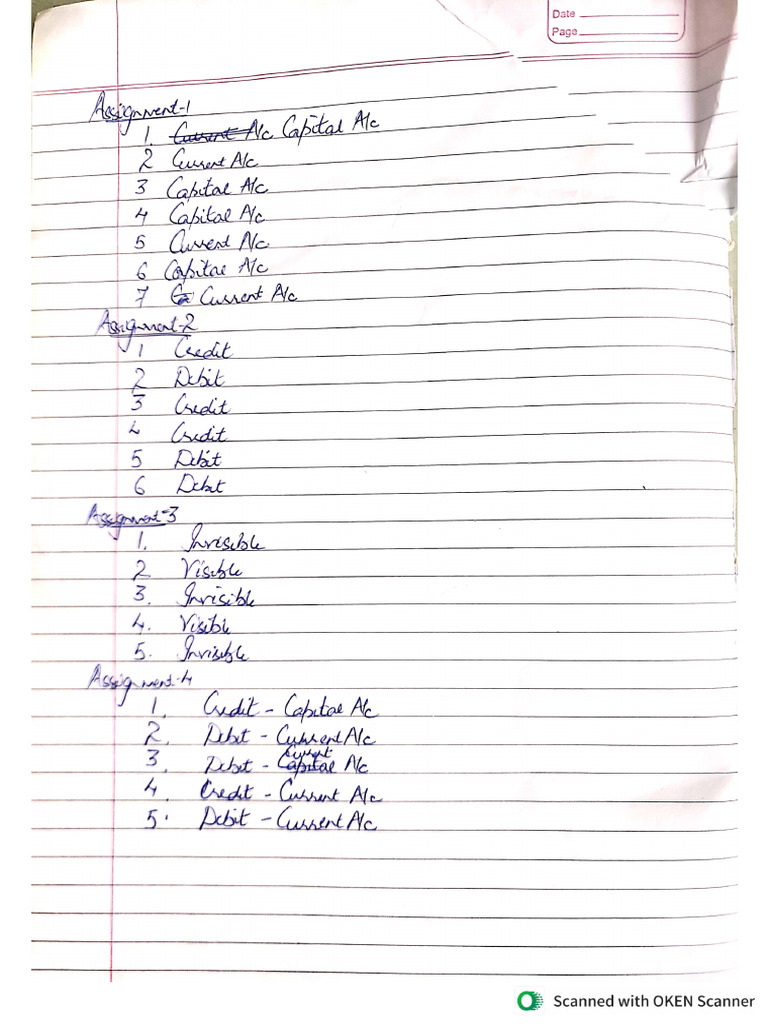 Date
Page
Assignment-1
1. Current A/c Capital A/c
2 Current A/c
3 Capital A/c
4 Capital A/c
5 Current A/c
6 Capital A/c
7 Ca Current A/c
Assignment-2
1 Credit
2 Debit
3 Credit
4 Credit
5 Debit
6 Debit
Assignment-3
1. Invisible
2 Visible
3. Invisible
4. Visible
5. Invisible
Assignment-4
1. Credit - Capital A/c
2. Debit - Current A/c
Current
3. Debit - Capital A/c
4. Credit - Current A/c
5. Debit - Current A/c
Scanned with OKEN Scanner